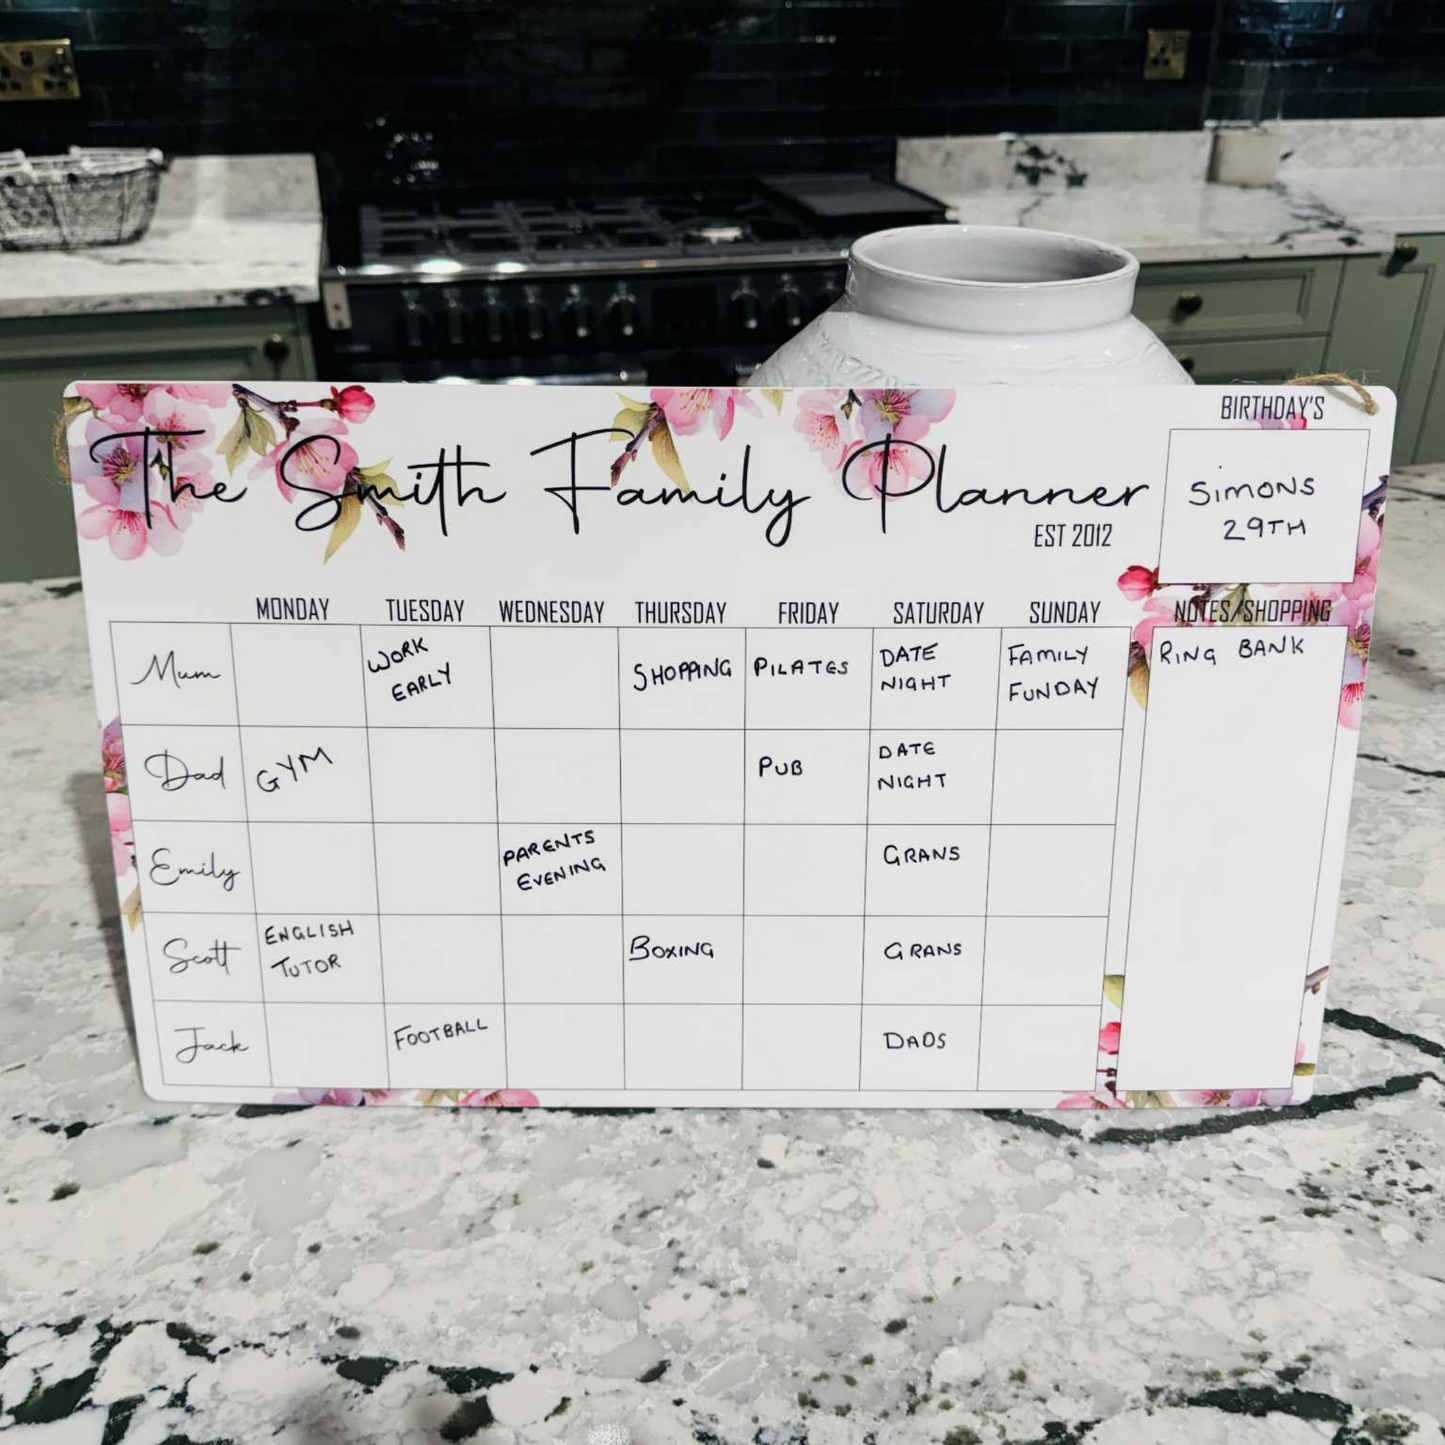 BIRTHDAY'S
The Smith Family Planner
EST 2012
SIMONS
29TH
MONDAY TUESDAY WEDNESDAY THURSDAY FRIDAY SATURDAY SUNDAY
NOTES/SHOPPING
RING BANK
Mum
WORK
EARLY
SHOPPING
PILATES
DATE
NIGHT
FAMILY
FUNDAY
Dad
GYM
PUB
DATE
NIGHT
Emily
PARENTS
EVENING
GRANS
Scott
ENGLISH
TUTOR
BOXING
GRANS
Jack
FOOTBALL
DADS